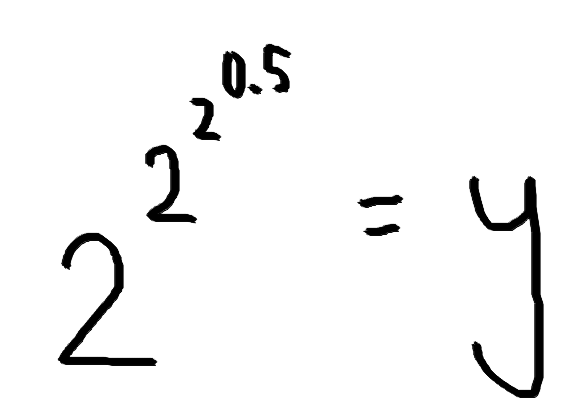 2^2^2^0.5 = y